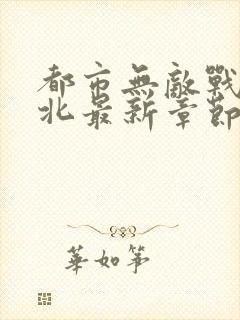 都市無敵戰
北最新章節
華如箏